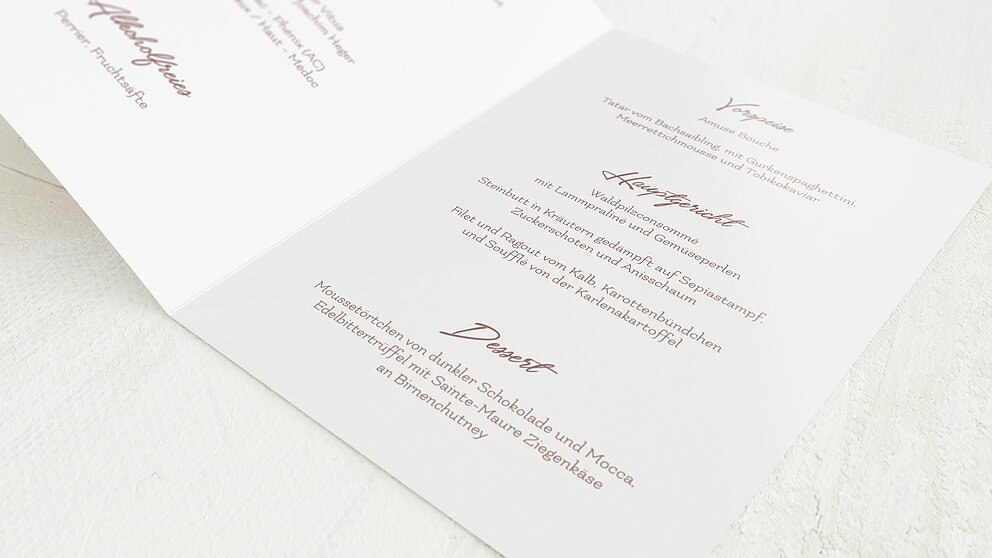 Vitus
Joachim Heger
- Phénix (AC)
/ Haut - Médoc
Alkoholfreies
Perrier, Fruchtsäfte
Vorspeise
Amuse Bouche
Tatar vom Bachsaibling, mit Gurkenspaghettini,
Meerrettichmousse und Tobikokaviar
Hauptgericht
Waldpilzconsommé
mit Lammpraliné und Gemüseperlen
Steinbutt in Kräutern gedämpft auf Sepiastampf,
Zuckerschoten und Anisschaum
Filet und Ragout vom Kalb, Karottenbündchen
und Soufflé von der Karlenakartoffel
Dessert
Moussetörtchen von dunkler Schokolade und Mocca,
Edelbittertrüffel mit Sainte-Maure Ziegenkäse
an Birnenchutney